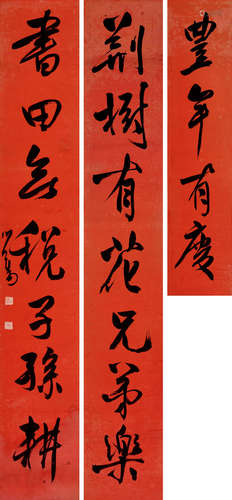 豐年有慶
荆樹有花兄弟樂
書田無稅子孫耕